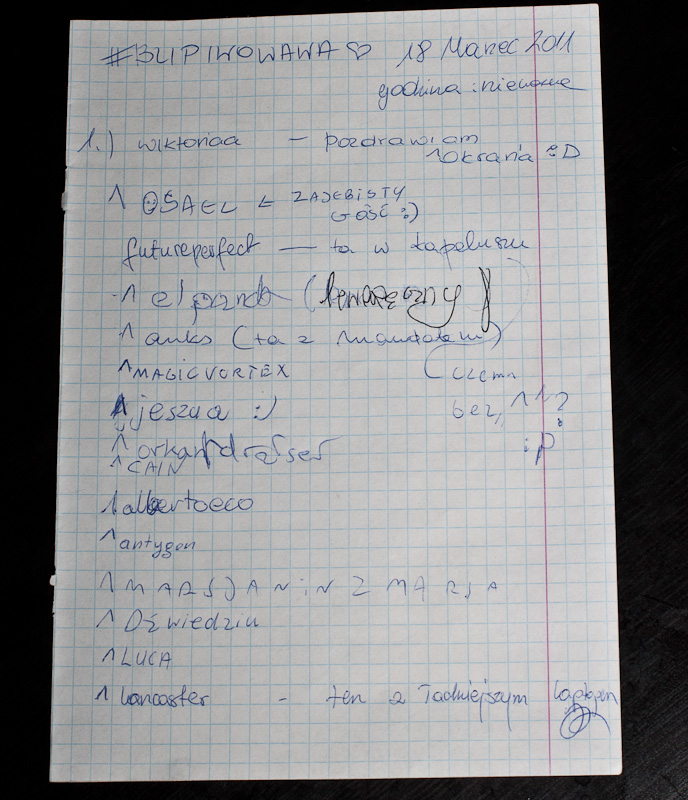 #BLIPIWOWAWA♡ 18 Marzec 2011
godzina:
1.) wiktoriaa - pozdrawiam
^Okrania :D
^ OSAEL ← ZAJEBISTY
GOŚĆ :)
futureperfect — ta w kapeluszu
^ elpanda
^ anks (ta z
^MAGICVORTEX (czemu
^jeszua :) bez „^"?
:P
^CAIN
^albertoeco
^antygen
^MARSJANiN Z MARSA
^Dźwiedziu
^LUCA
^lancaster - ten z ładniejszym laptopem